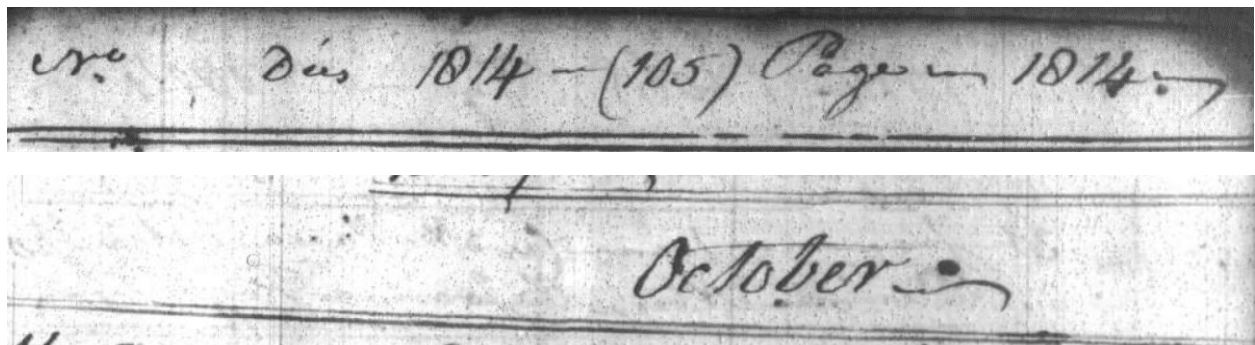 No Dies 1814 - (105) Page 1814.
October